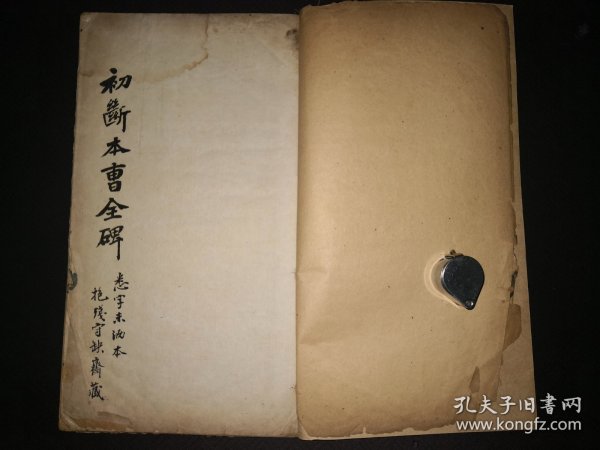 初斷本曹全碑
悉字未泐本
抱殘守缺齋藏
孔夫子旧書网
www.kongfz.com